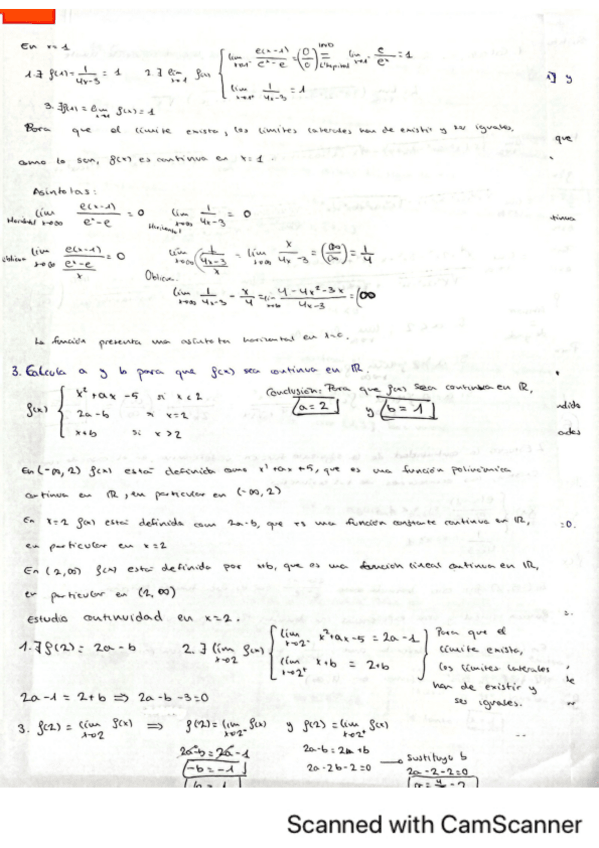 En x=1
1. ∃ f(1)= 1/(4x-3) = 1   2. ∃ lim x→1 f(x) { lim x→1⁻ e(x-1)/(eˣ-e) = (0/0) = IND L'Hopital lim x→1⁻ e/eˣ = 1
lim x→1⁺ 1/(4x-3) = 1
1] y
3. ∃ f(1) = lim x→1 f(x) = 1
Para que el límite exista, los límites laterales han de existir y ser iguales,
que
como lo son, f(x) es continua en x=1.
Asíntotas:
lim x→∞ e(x-1)/(eˣ-e) = 0   lim x→∞ 1/(4x-3) = 0
Horizontal   Horizontal
tinua
Oblicua lim x→∞ (e(x-1)/(eˣ-e))/x = 0   lim x→∞ (1/(4x-3))/x = lim x→∞ x/(4x-3) = (∞/∞) = 1/4
Oblicua
lim x→∞ 1/(4x-3) - x/4 = lim x→∞ (4-4x²-3x)/(4x-3) = ∞
La función presenta una asíntota horizontal en
3. Calcula a y b para que f(x) sea continua en ℝ.
f(x) { x²+ax-5 si x<2
2a-b si x=2
x+b si x>2
Conclusión: Para que f(x) sea continua en ℝ,
a=2 y b=1
ndido
ades
En (-∞, 2) f(x) está definida como x²+ax+5, que es una función polinómica
continua en ℝ, en particular en (-∞, 2)
En x=2 f(x) está definida como 2a-b, que es una función constante continua en ℝ,
=0.
en particular en x=2
En (2,∞) f(x) está definida por x+b, que es una función lineal continua en ℝ,
en particular en (2, ∞)
estudio continuidad en x=2.
1. ∃ f(2) = 2a-b   2. ∃ lim x→2 f(x) { lim x→2⁻ x²+ax-5 = 2a-1
lim x→2⁺ x+b = 2+b }
Para que el
límite exista,
los límites laterales
han de existir y
ser iguales.
te
2a-1 = 2+b ⇒ 2a-b-3=0
3. f(2) = lim x→2 f(x) ⇒ f(2) = lim x→2⁻ f(x) y f(2) = lim x→2⁺ f(x)
2a-b = 2a-1   2a-b = 2+b
-b = -1   2a-2b-2=0 → Sustituyo b
b = 1   2a-2-2=0
a = 4/2 = 2
Scanned with CamScanner